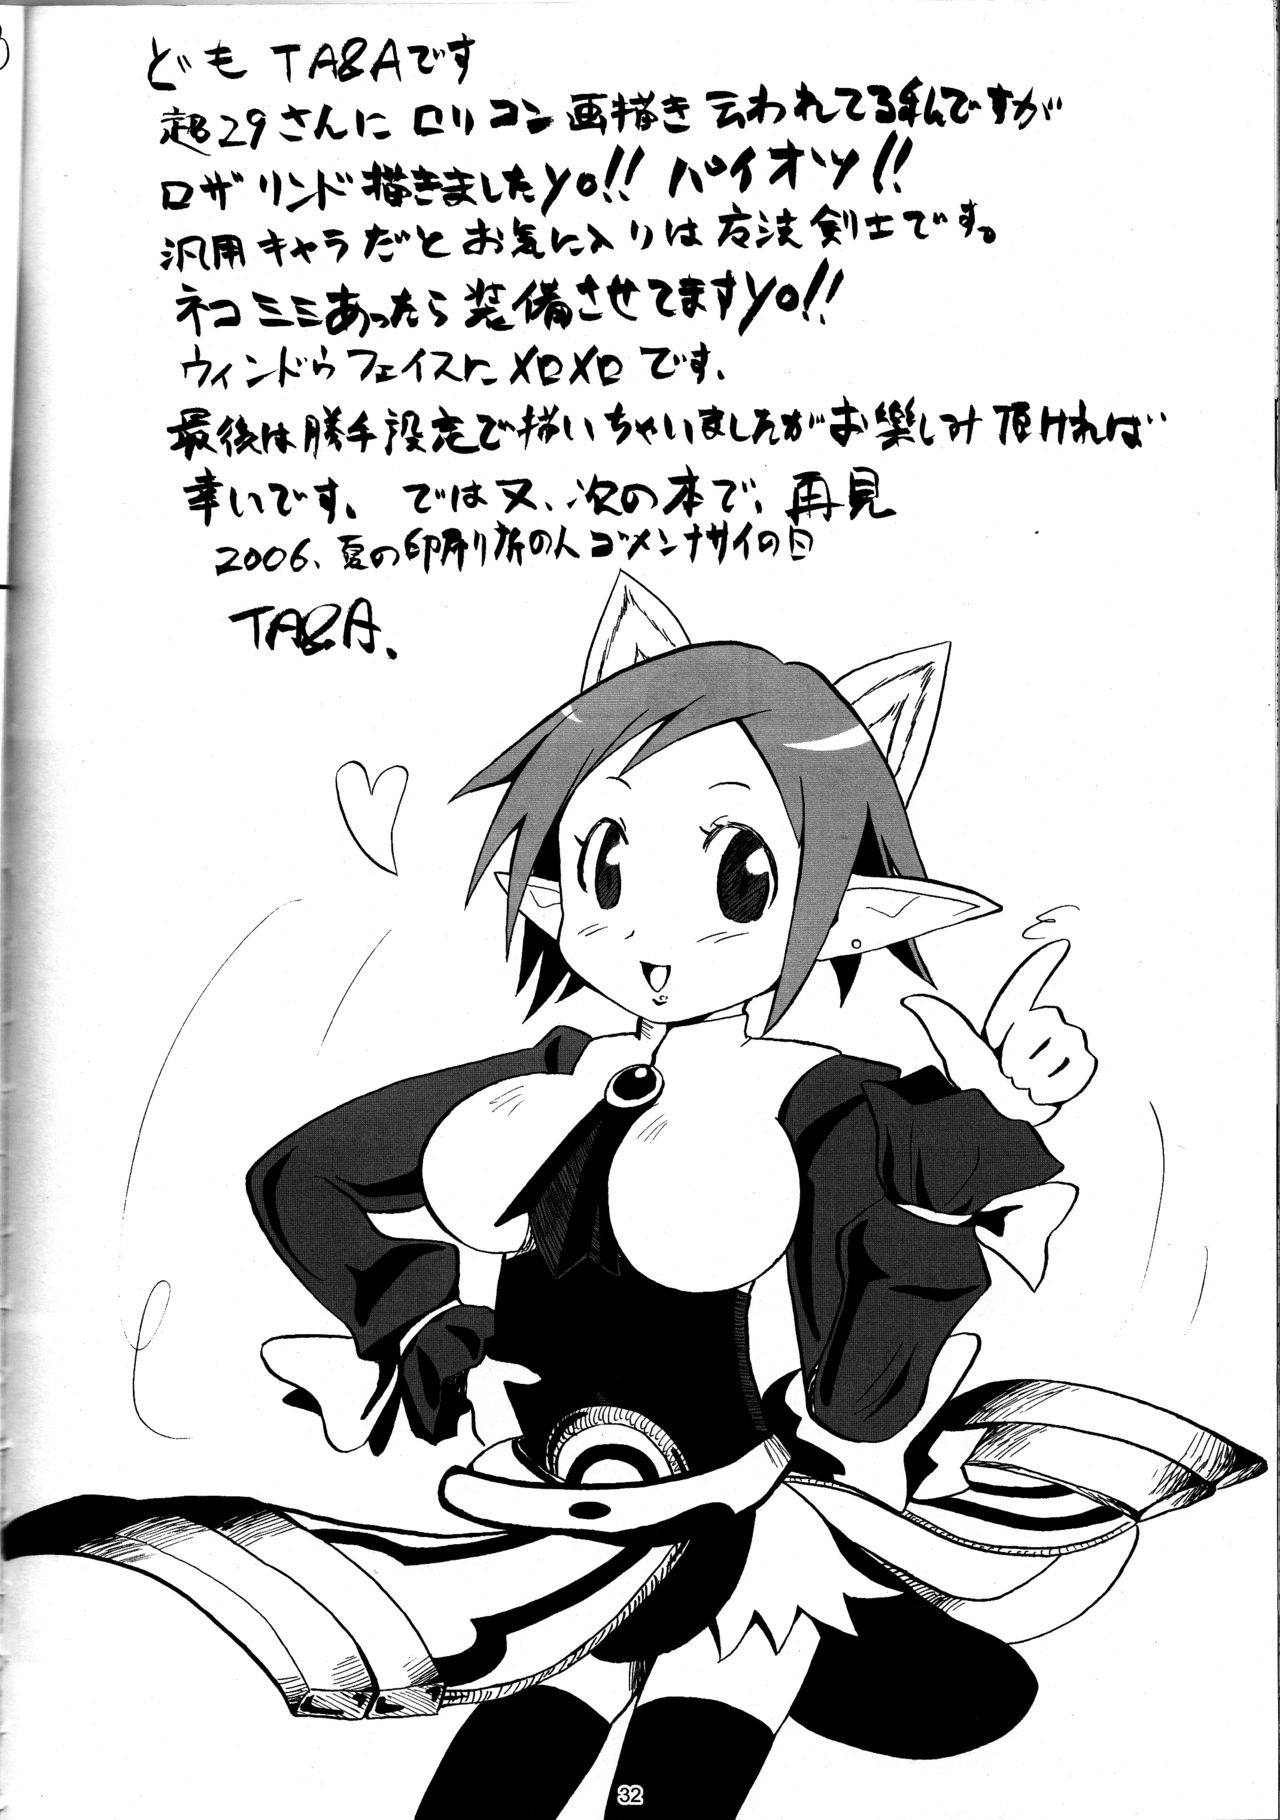 ども TA&Aです
超29さんに ロリコン画描き 云われてる私んですが
ロザリンド描きましたyo!! パイオツ!!
汎用キャラだとお気に入りは方法剣士です。
ネコミミあったら装備させてますyo!!
ウィンドウフェイスにメロメロです。
最後は勝手設定で描いちゃいましたがお楽しみ頂ければ
幸いです。 では又、次の本で、再見
2006、夏の印刷所の人ゴメンナサイの日
TA&A.
32